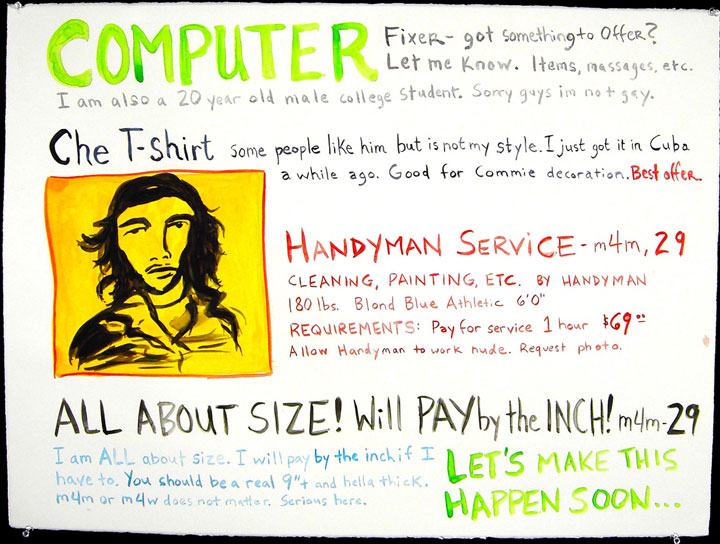 COMPUTER Fixer- got something to Offer?
Let me Know. Items, massages, etc.
I am also a 20 year old male college student. Sorry guys im not gay.
Che T-shirt some people like him but is not my style. I just got it in Cuba
a while ago. Good for Commie decoration. Best offer.
HANDYMAN SERVICE - m4m, 29
CLEANING, PAINTING, ETC. BY HANDYMAN
180 lbs. Blond Blue Athletic 6'0"
REQUIREMENTS: Pay for service 1 hour $69.00
Allow Handyman to work nude. Request photo.
ALL ABOUT SIZE! Will PAY by the INCH! m4m-29
I am ALL about size. I will pay by the inch if I
have to. You should be a real 9"+ and hella thick.
m4m or m4w does not matter. Serious here.
LET'S MAKE THIS
HAPPEN SOON...